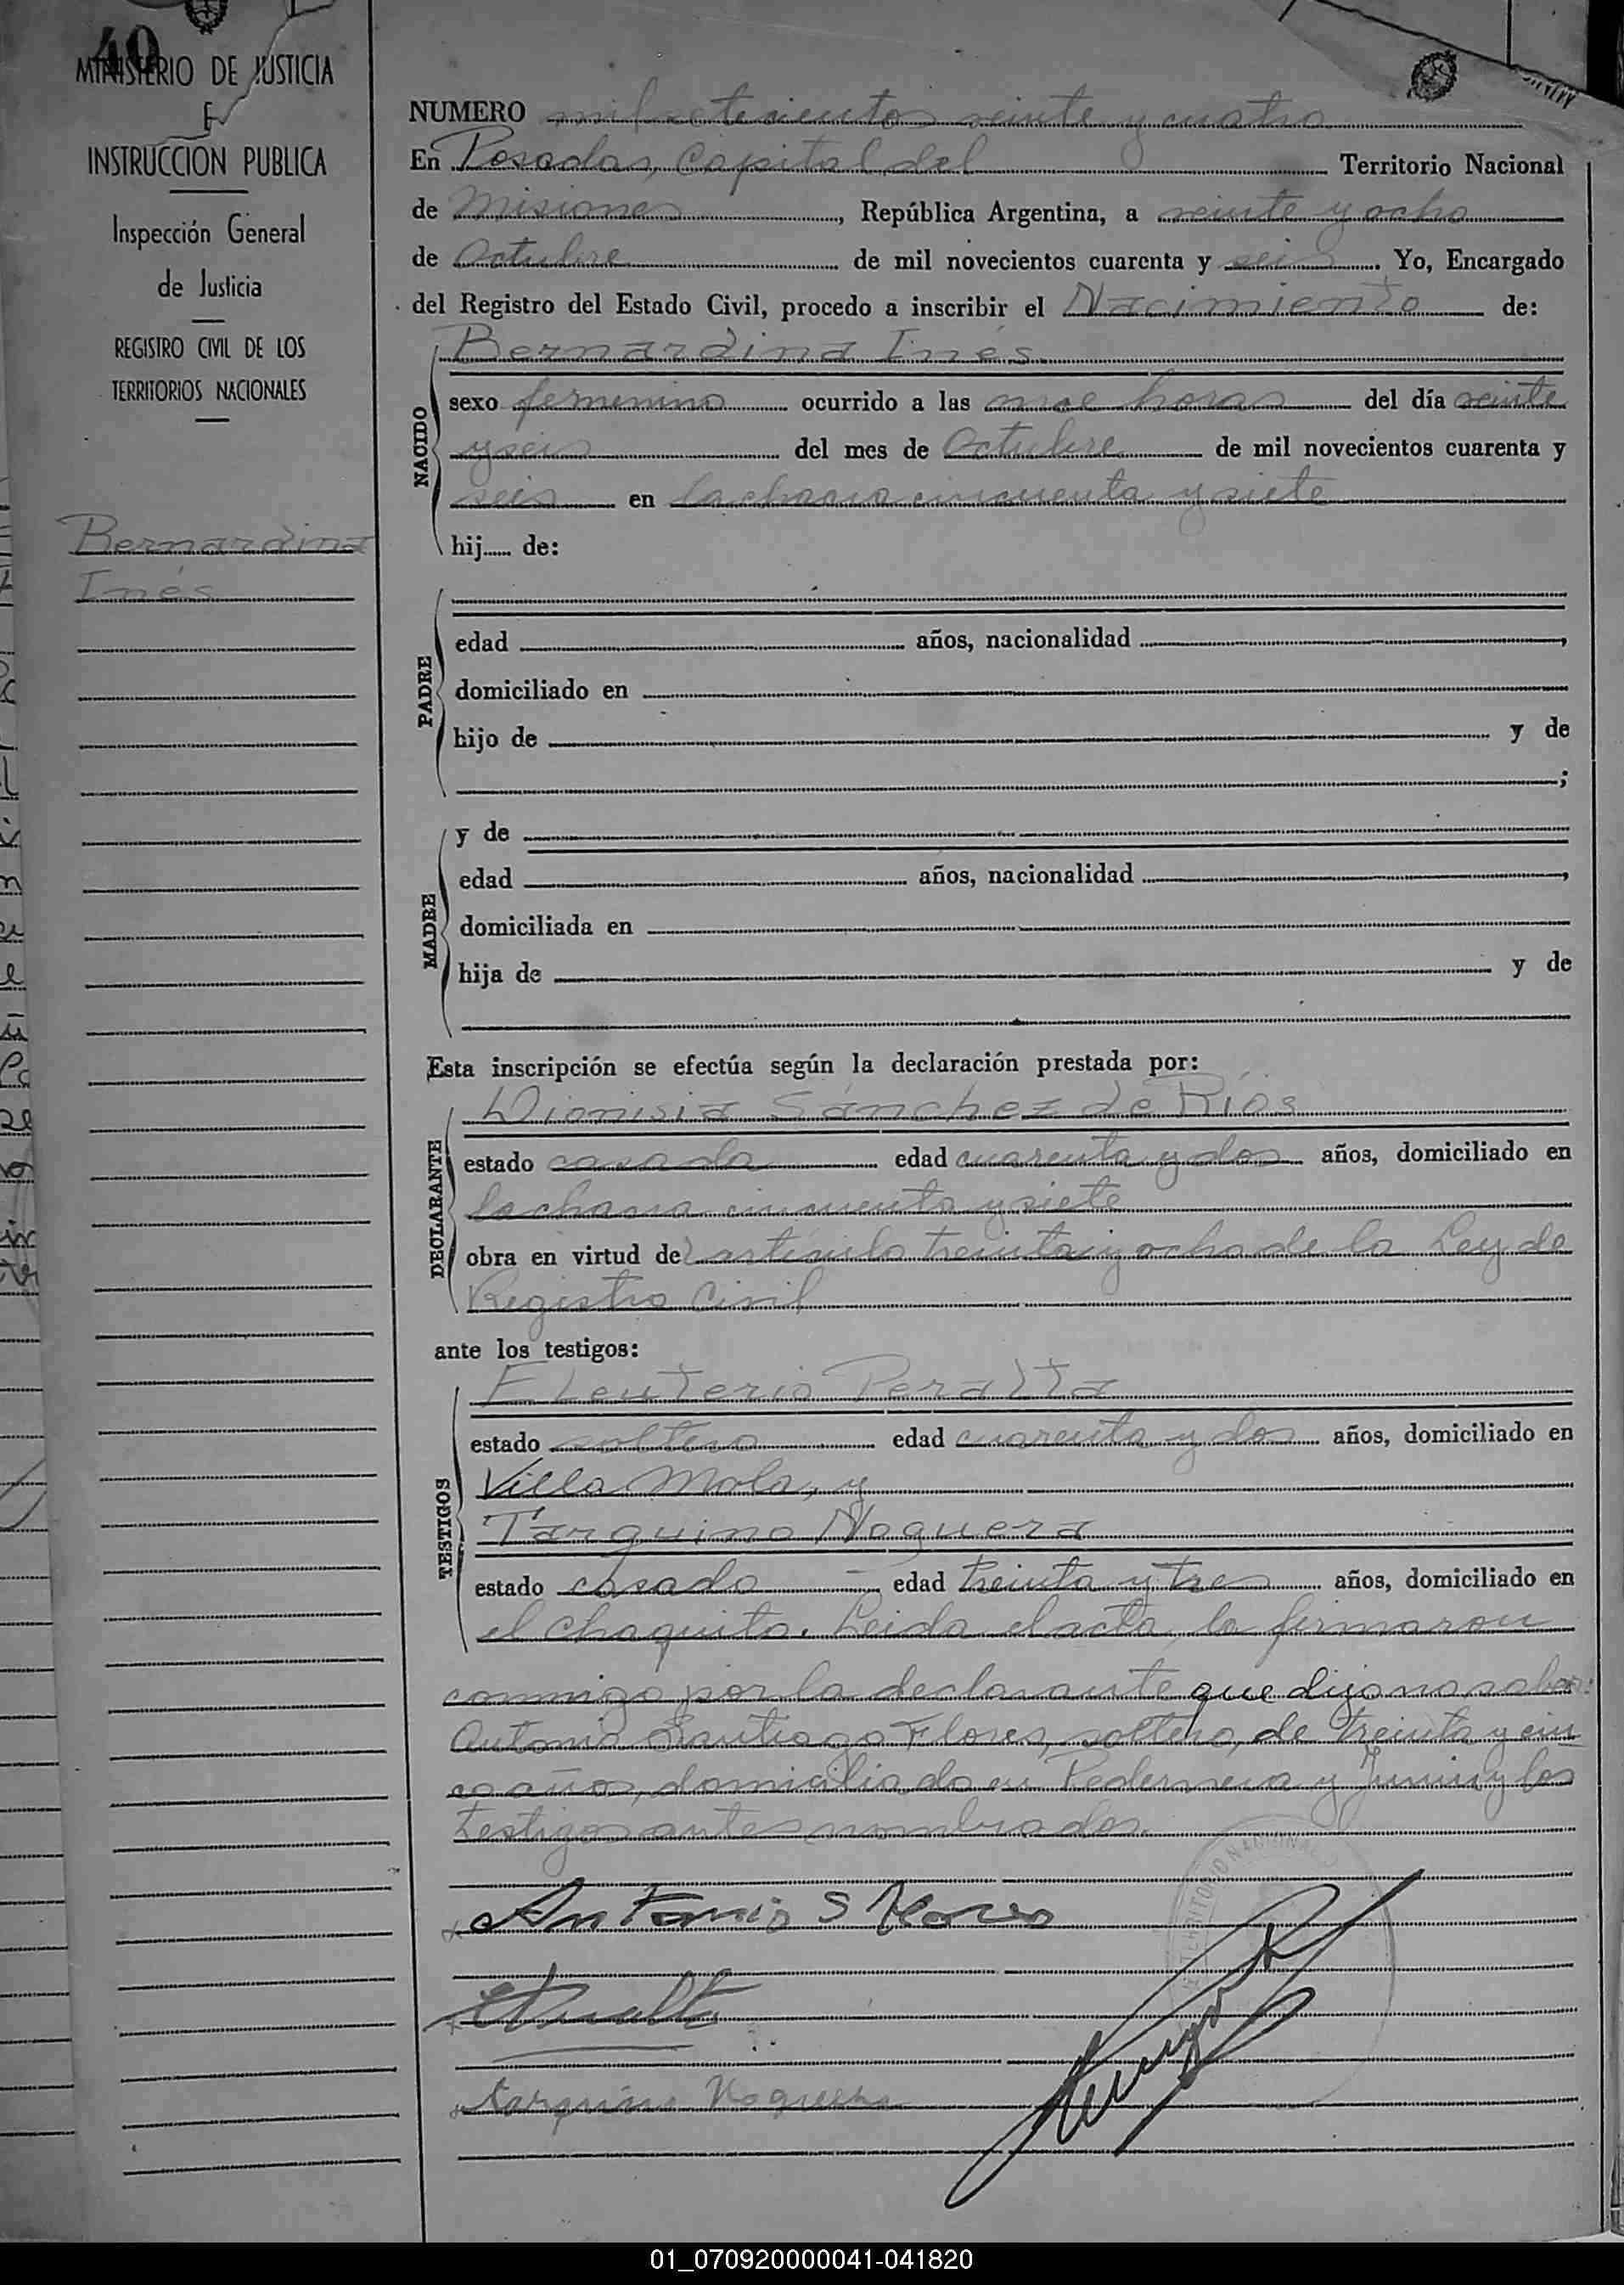 40
MINISTERIO DE JUSTICIA
E
INSTRUCCION PUBLICA
Inspección General
de Justicia
REGISTRO CIVIL DE LOS
TERRITORIOS NACIONALES
Bernardina
Inés
NUMERO mil setecientos veinte y cuatro
En Posadas, Capital del Territorio Nacional
de Misiones, República Argentina, a veinte y ocho
de Octubre de mil novecientos cuarenta y seis. Yo, Encargado
del Registro del Estado Civil, procedo a inscribir el Nacimiento de:
NACIDO
Bernardina Inés
sexo femenino ocurrido a las once horas del día veinte
y seis del mes de Octubre de mil novecientos cuarenta y
seis en la chacra cincuenta y siete
hij de:
PADRE
edad años, nacionalidad ,
domiciliado en
hijo de y de
;
MADRE
y de
edad años, nacionalidad ,
domiciliada en
hija de y de
Esta inscripción se efectúa según la declaración prestada por:
DECLARANTE
Dionisia Sánchez de Ríos
estado casada edad cuarenta y dos años, domiciliado en
la chacra cincuenta y siete
obra en virtud del artículo treinta y ocho de la Ley de
Registro Civil
ante los testigos:
TESTIGOS
Eleuterio Peralta
estado soltero edad cuarenta y dos años, domiciliado en
Villa Mola, y
Tarquino Noguera
estado casado edad treinta y tres años, domiciliado en
el Chaquito. Leida el acta, la firmaron
conmigo por la declarante que dijo no saber:
Antonio Santiago Flores, soltero, de treinta y cin
co años, domiciliado en Pedernera y Junin y los
testigos antes nombrados.
Antonio S Flores
EPeralta
Tarquino Noguera
TERRITORIO NACIONAL
01_070920000041-041820